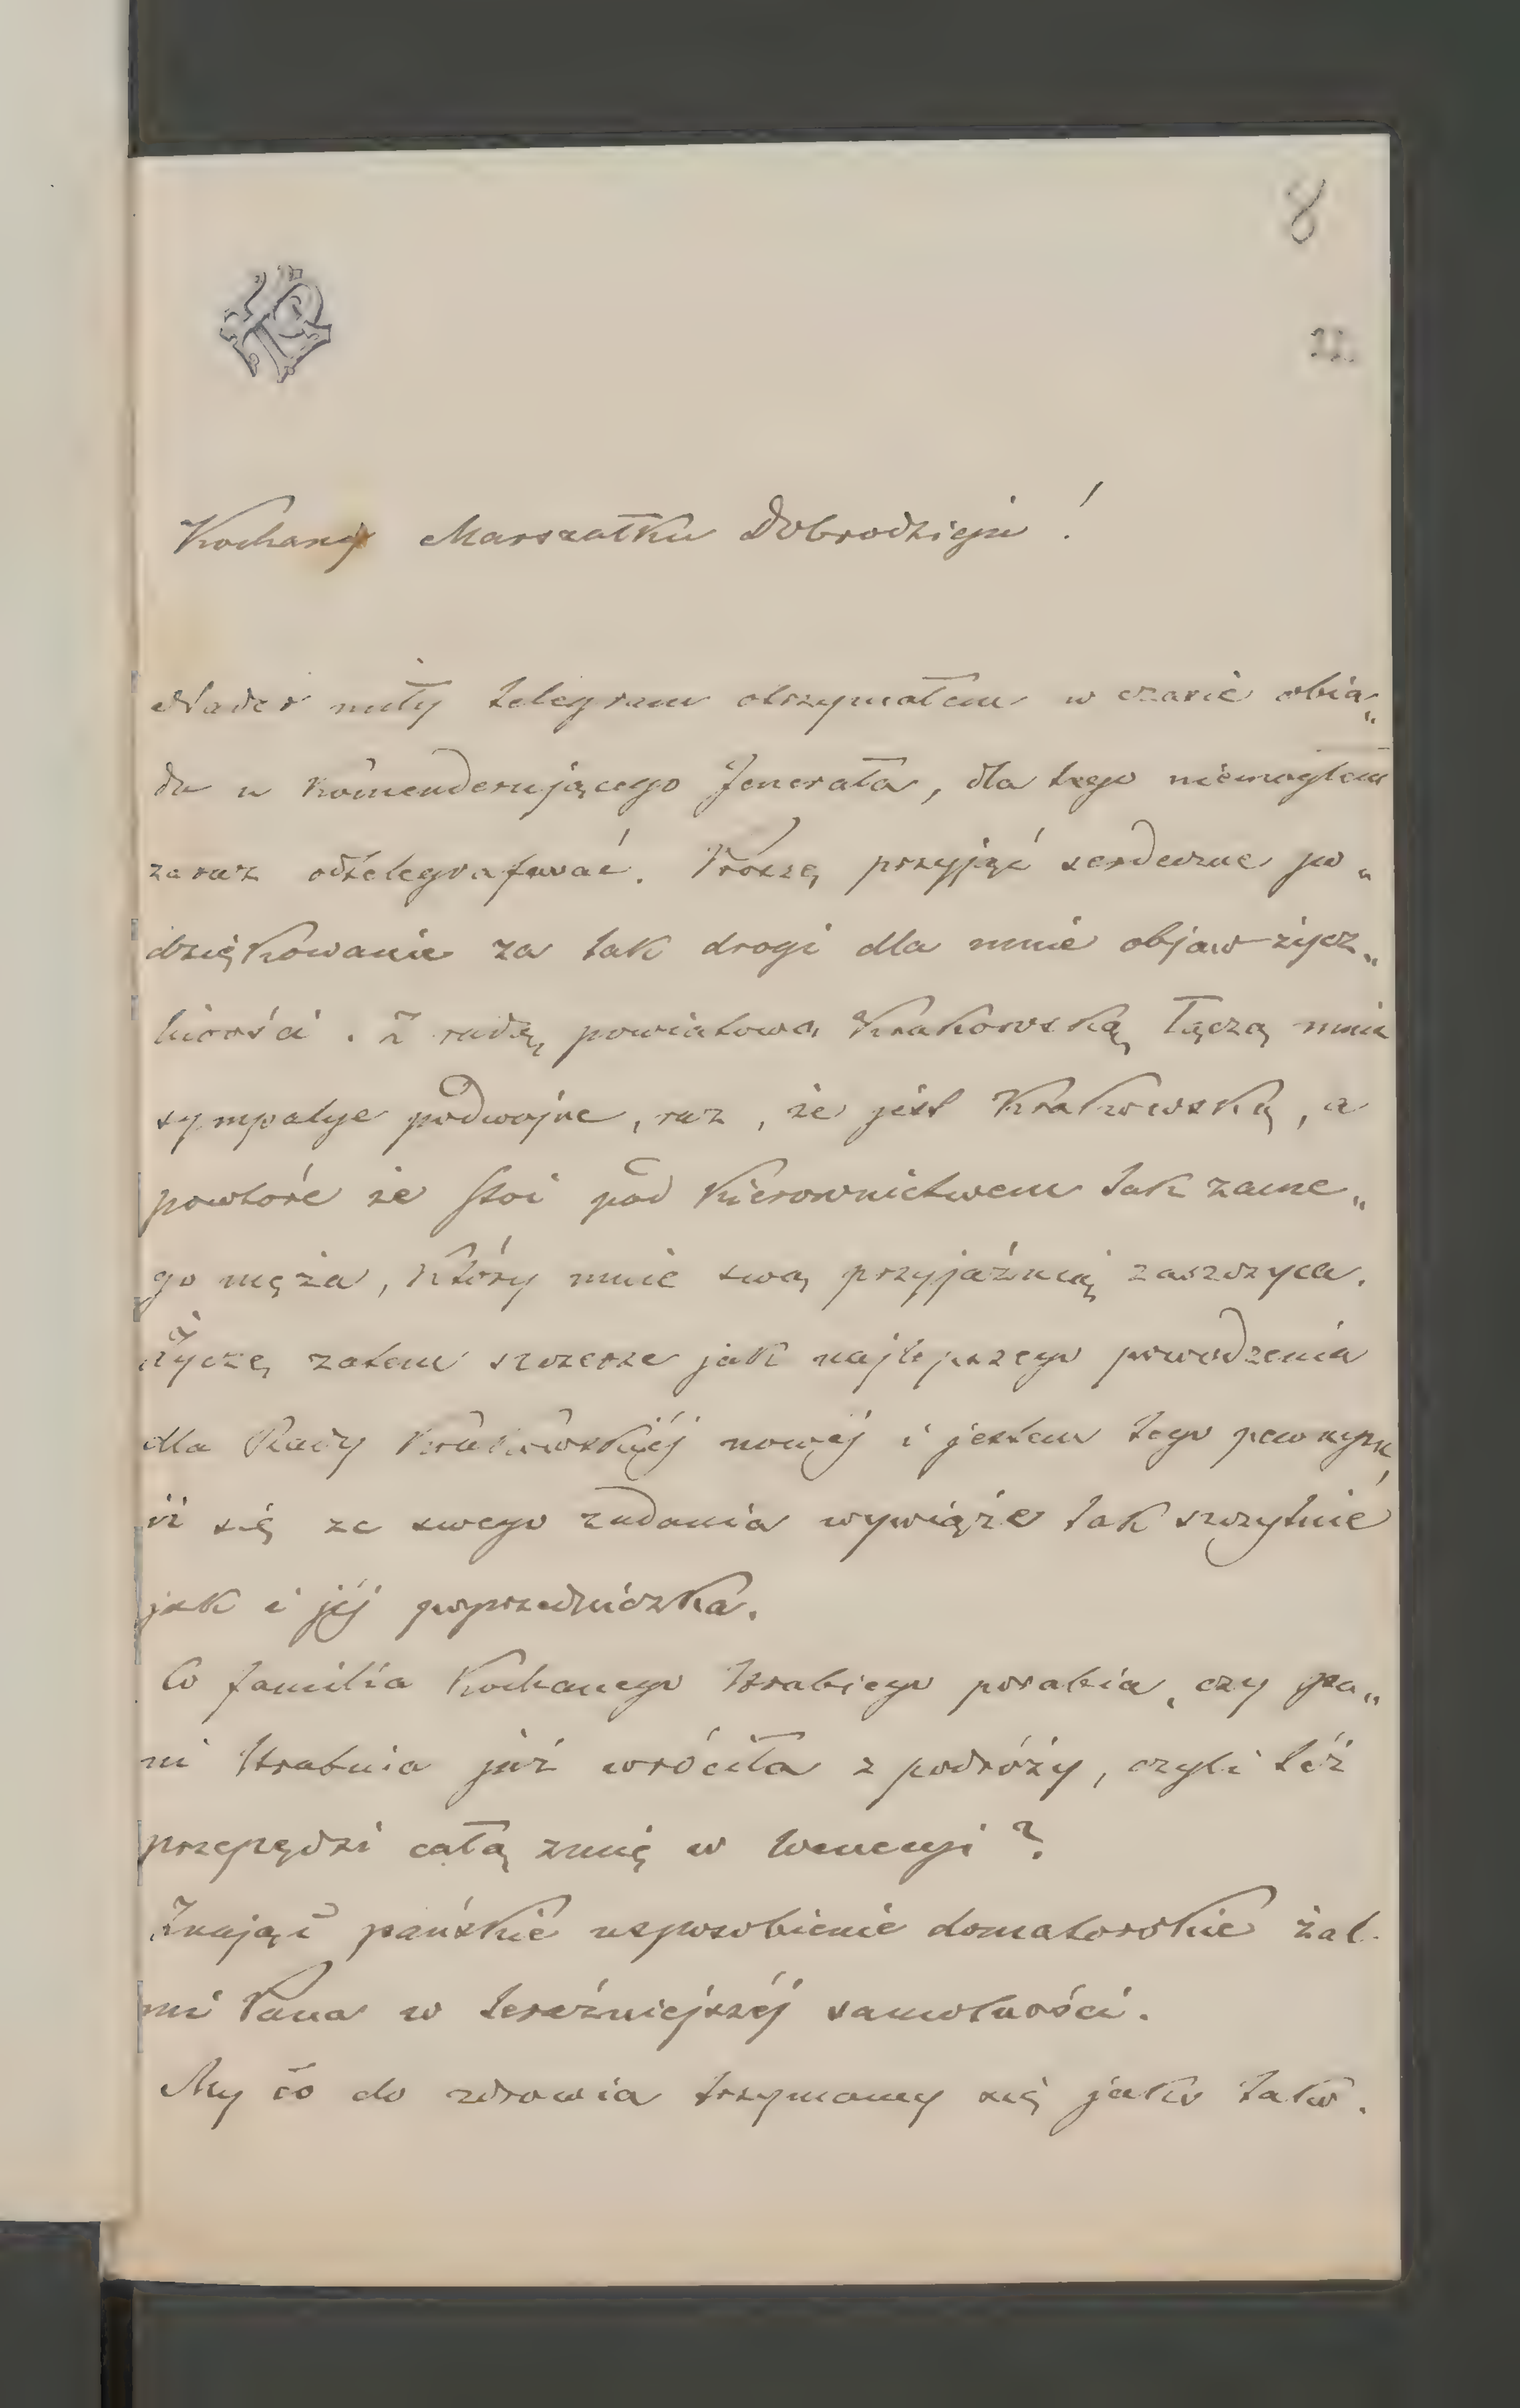 8
21.
Kochany Marszałku Dobrodzieju!
Nader miły telegram otrzymałem w czasie obia„
du u komenderującego Jenerała, dla tego niemogłem
zaraz odtelegrafować. Proszę przyjąć serdeczne po„
dziękowanie za tak drogi dla mnie objaw życz„
liwości. Z radą powiatową Krakowską łączą mnie
sympatye podwojne, raz, że jest Krakowską, a
powtóre że stoi pod kierownictwem tak zacne„
go męża, który mnie swą przyjaźnią zaszczyca.
Życzę zatem szczerze jak najlepszego powodzenia
dla Rady Krakowskiéj nowéj i jestem tego pewnym,
iż się ze swego zadania wywiąże tak szczytnie
jak i jéj poprzedniczka.
Co familia Kochanego Hrabiego porabia, czy pa„
ni Hrabina już wróciła z podróży, czyli téż
przepędzi całą zimę w Wenecyi?
Znając pańskie usposobienie domatorskie żal
mi Pana w tereźniejszéj samotności.
My co do zdrowia trzymamy się jako tako.